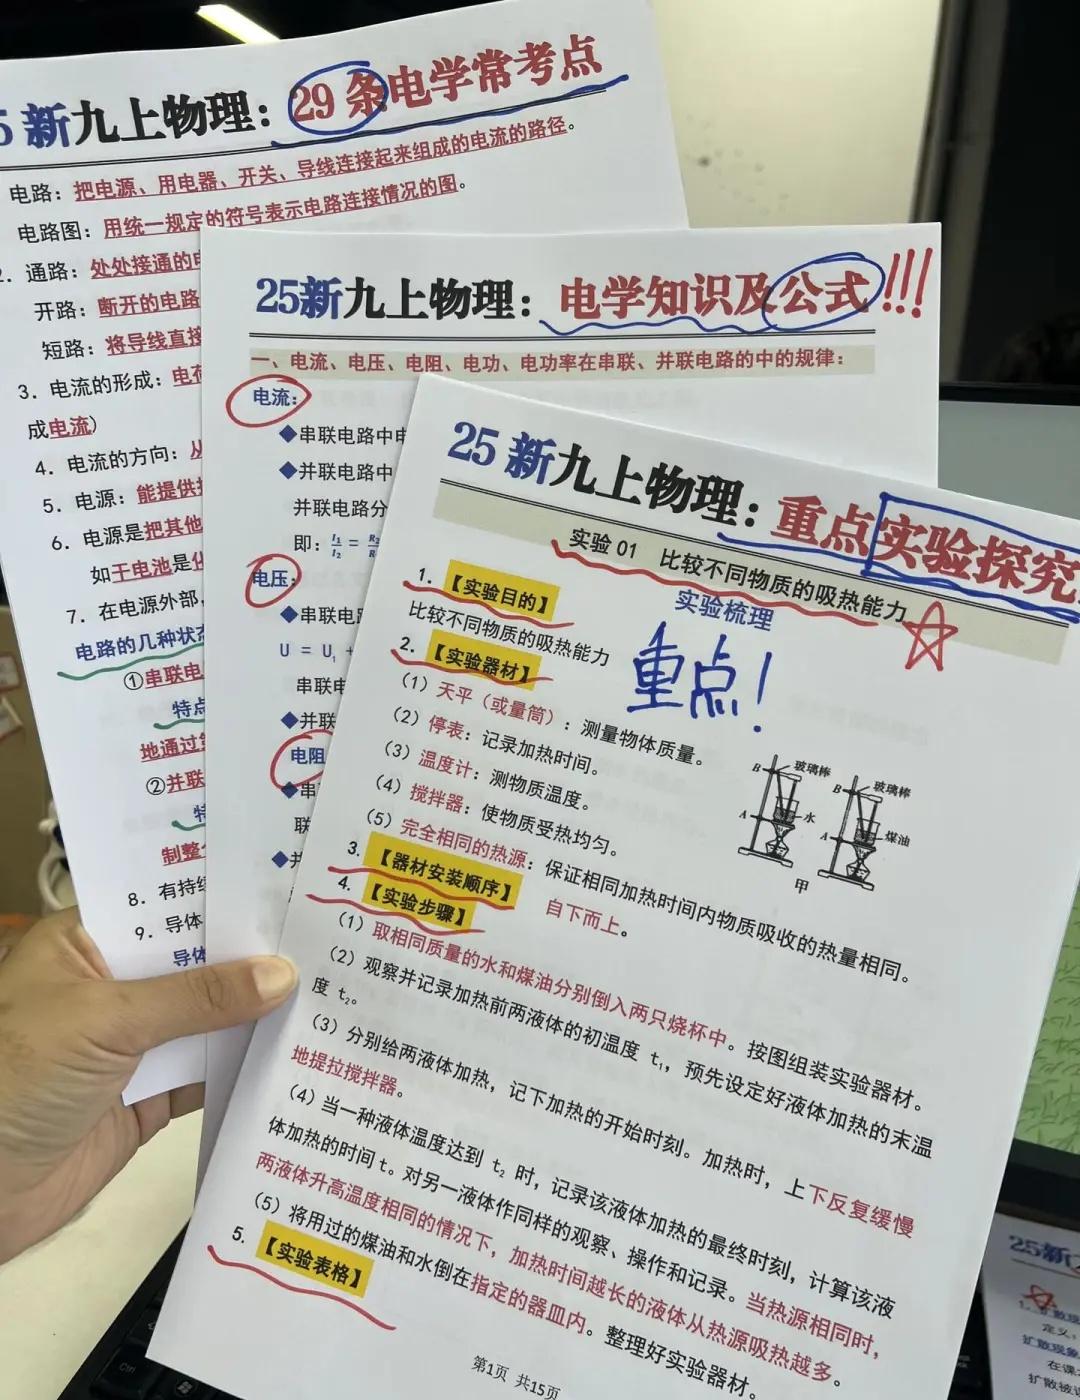 5新九上物理：29条电学常考点
电路：把电源、用电器、开关、导线连接起来组成的电流的路径。
电路图：用统一规定的符号表示电路连接情况的图。
2. 通路：处处接通的
开路：断开的电路
短路：将导线直接
3. 电流的形成：电
成电流)
4. 电流的方向：从
5. 电源：能提供
6. 电源是把其他
如干电池是
7. 在电源外部，
电路的几种状态
①串联电
特点
地通过
②并联
特
制整
8. 有持续
9. 导体
导体
25新九上物理：电学知识及公式!!!
一、电流、电压、电阻、电功、电功率在串联、并联电路的中的规律：
电流：
◆串联电路中电
◆并联电路中
并联电路分
即：I₁/I₂ = R₂/R
电压：
◆串联电路
U = U₁ +
串联电
◆并联
电阻
◆串
联
◆并
25新九上物理：重点实验探究
实验01 比较不同物质的吸热能力
实验梳理
重点！
1.【实验目的】
比较不同物质的吸热能力
2.【实验器材】
(1) 天平（或量筒）：测量物体质量。
(2) 停表：记录加热时间。
(3) 温度计：测物质温度。
(4) 搅拌器：使物质受热均匀。
(5) 完全相同的热源：保证相同加热时间内物质吸收的热量相同。
B 玻璃棒
A 水
B 玻璃棒
A 煤油
甲
3.【器材安装顺序】自下而上。
4.【实验步骤】
(1) 取相同质量的水和煤油分别倒入两只烧杯中。按图组装实验器材。
(2) 观察并记录加热前两液体的初温度 t₁，预先设定好液体加热的末温
度 t₂。
(3) 分别给两液体加热，记下加热的开始时刻。加热时，上下反复缓慢
地提拉搅拌器。
(4) 当一种液体温度达到 t₂ 时，记录该液体加热的最终时刻，计算该液
体加热的时间 t。对另一液体作同样的观察、操作和记录。当热源相同时，
两液体升高温度相同的情况下，加热时间越长的液体从热源吸热越多。
(5) 将用过的煤油和水倒在指定的器皿内。整理好实验器材。
5.【实验表格】
第1页 共15页
25新
1. 扩散现
定义：
扩散现象
在课
扩散被
Ctrl